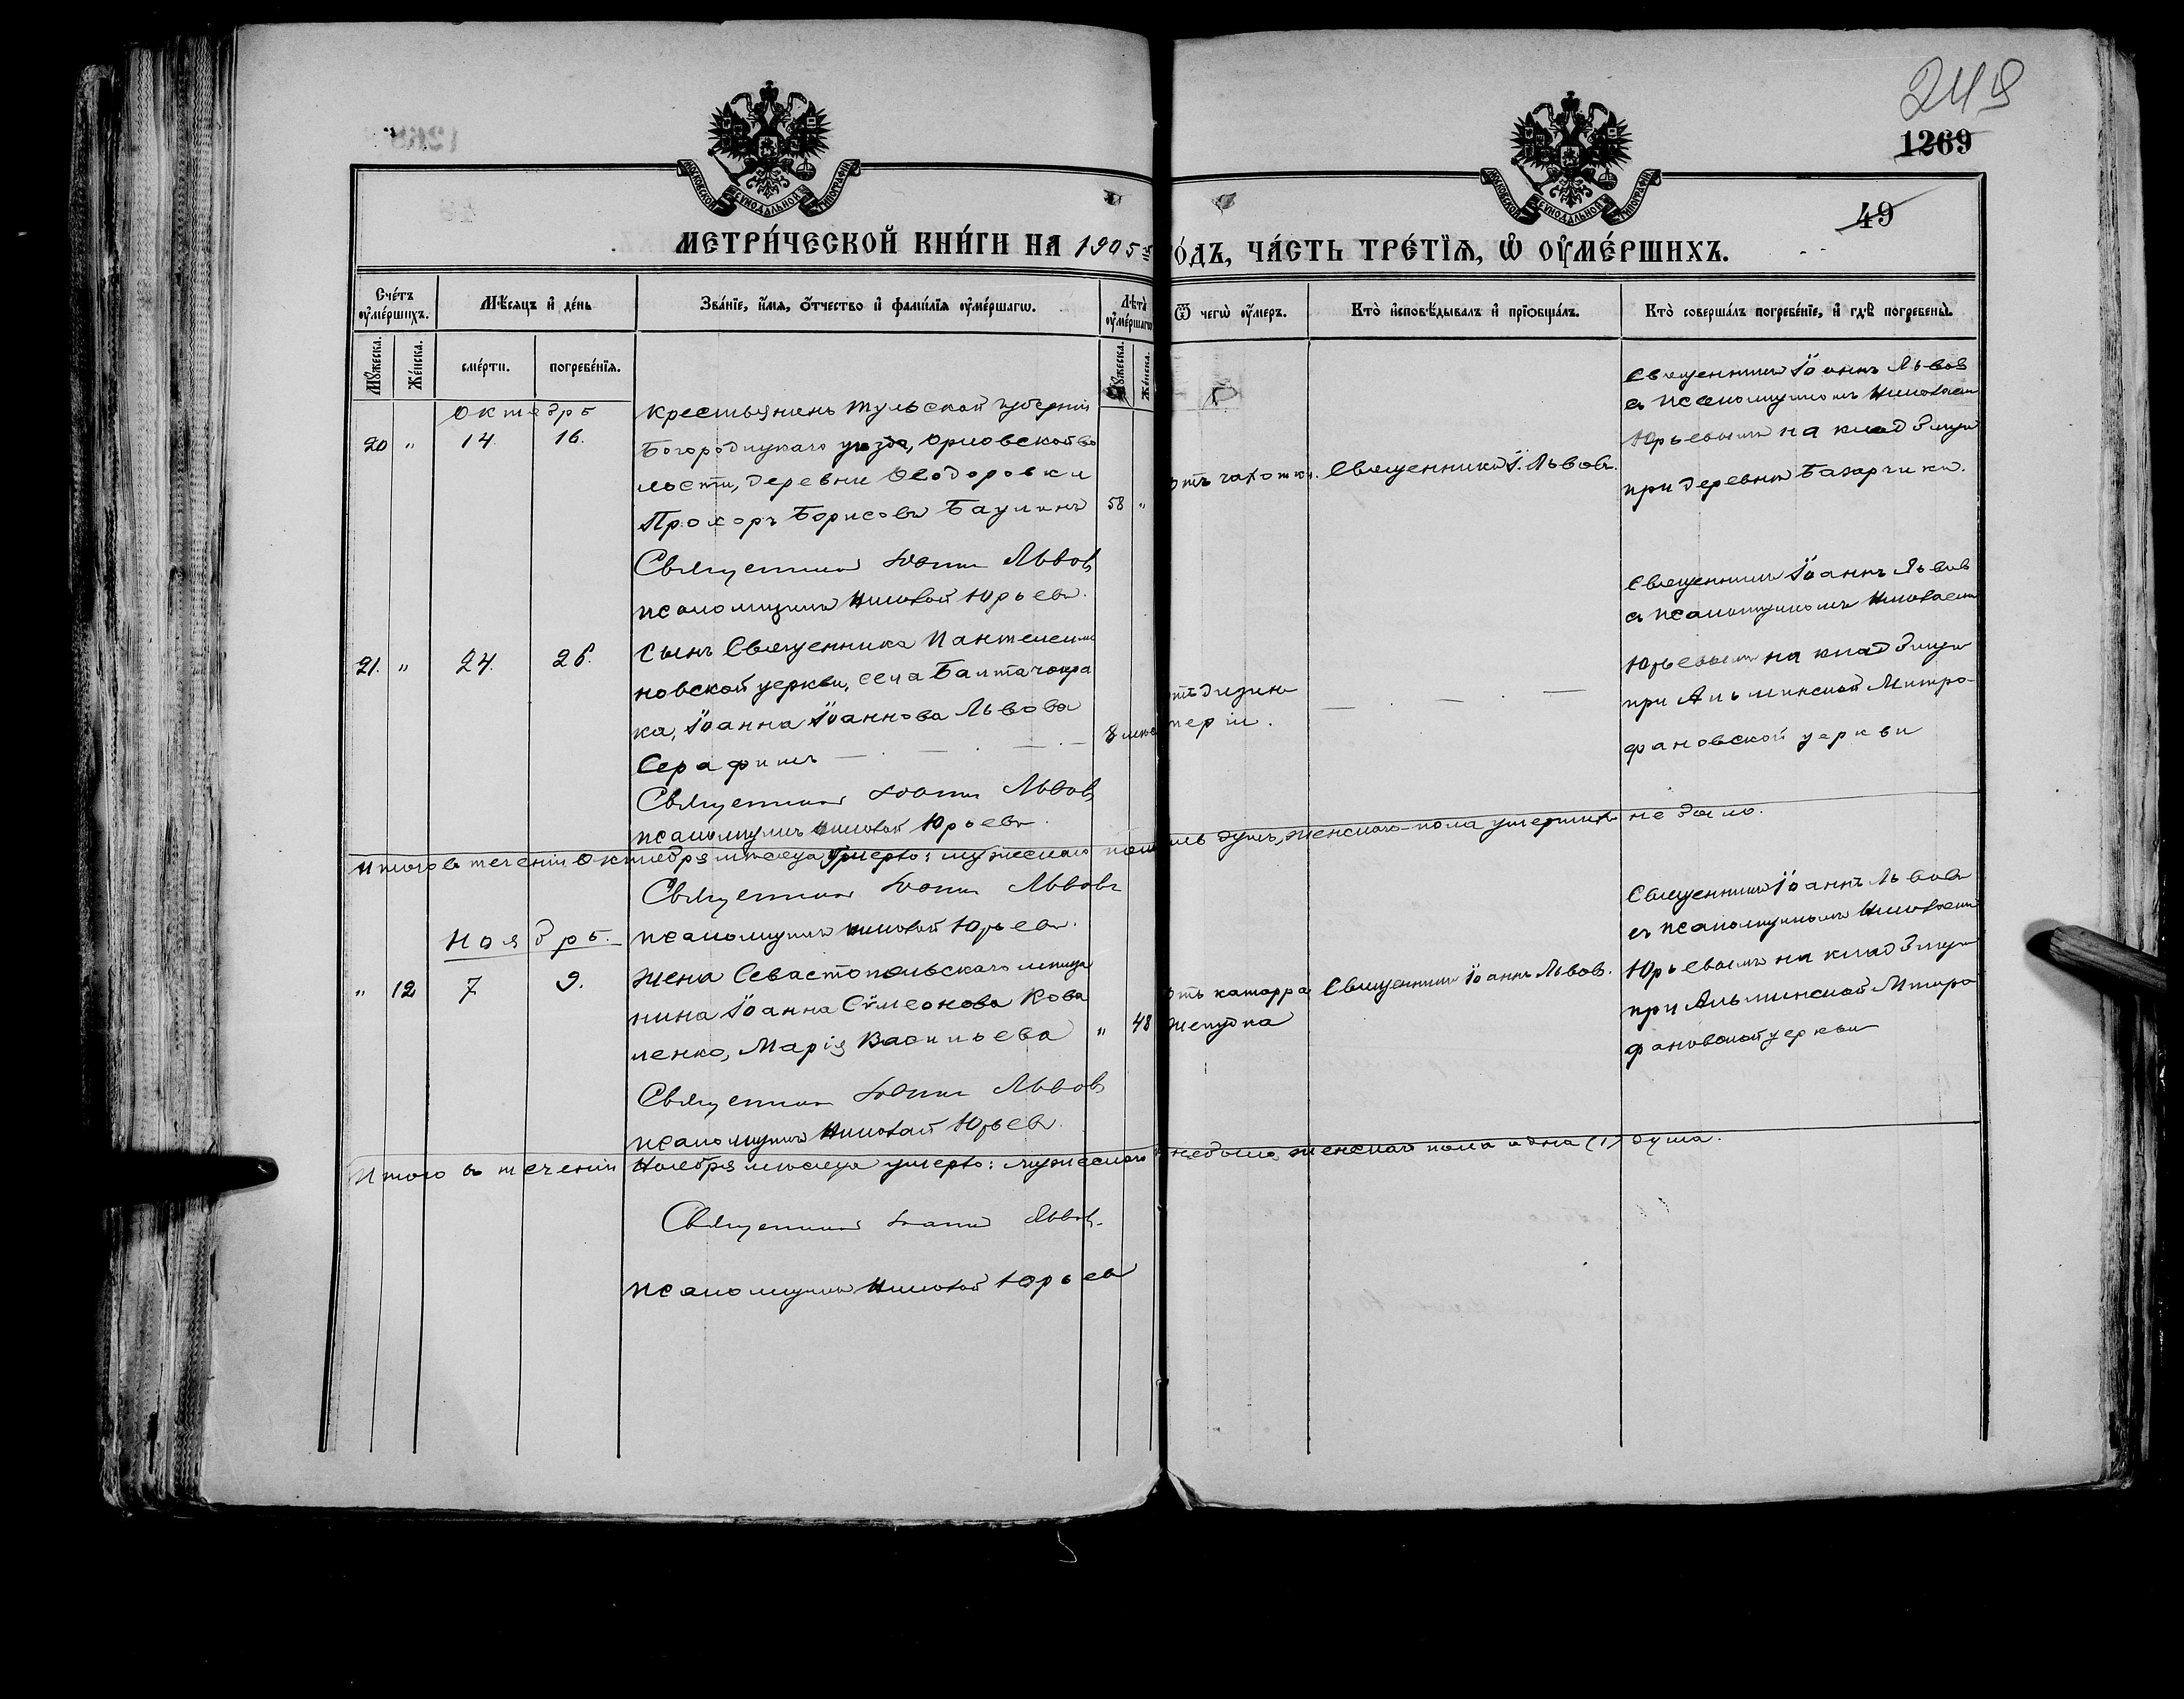 249
1269
49
МОСКОВСКОЙ СУНОДАЛЬНОЙ ТИПОГРАФІИ
МОСКОВСКОЙ СУНОДАЛЬНОЙ ТИПОГРАФІИ
МЕТРИ́ЧЕСКОЙ КНИ́ГИ НА 1905 й
О́ДЪ, ЧА́СТЬ ТРЕ́ТЇѦ, Ѡ҆ ОУ҆МЕ́РШИХЪ.
Сче́тъ оу҆ме́ршихъ.
Мѣ́сяцъ и҆ де́нь
Зва́нїе, и҆́мя, ѻ҆́тчество и҆ фами́лїя оу҆ме́ршагѡ.
Лѣ́та оу҆ме́ршагѡ
Ѿ чегѡ̀ оу҆́меръ.
Кто̀ и҆сповѣ́дывалъ и҆ прїѡбща́лъ.
Кто̀ соверша́лъ погребе́нїе, и҆ гдѣ̀ погребены̀.
Мꙋ́жеска.
Же́нска.
сме́рти.
погребе́нїя.
Мꙋ́жеска.
Же́нска.
Октябрь
20 " 14. 16.
Крестьянинъ Тульской губерніи
Богородицкаго уѣзда, Орловской во
лости, деревни Ѳеодоровки
Прохоръ Борисовъ Баулинъ
58 "
отъ чахотки.
Священникъ І. Львовъ.
Священникъ Іоаннъ Львов
съ псаломщикомъ Николаемъ
Юрьевымъ на кладбищѣ
при деревнѣ Базарчикъ.
Священникъ Іоаннъ Львов
псаломщикъ Николай Юрьевъ.
21. " 24. 26.
Сынъ Священника Пантелеимо
новской церкви, села Биитачокра
ка, Іоанна Іоаннова Львова
Серафимъ
8 мѣс
отъ дизин
теріи.
Священникъ Іоаннъ Львов
съ псаломщикомъ Николаемъ
Юрьевымъ на кладбищѣ
при Альминской Митро-
фановской церкви
Священникъ Іоаннъ Львов
псаломщикъ Николай Юрьевъ.
Итого въ теченіи Октября мѣсяца умерло: мужескаго душъ, женскаго пола умершихъ не было.
Священникъ Іоаннъ Львовъ
псаломщикъ Николай Юрьевъ.
Ноябрь.
" 12 7 9.
Жена Севастопольскаго мѣща
нина Іоанна Сѵмеонова Кова
ленко, Марія Васильева
" 48
отъ катарра
желудка
Священникъ Іоаннъ Львов.
Священникъ Іоаннъ Львовъ
съ псаломщикомъ Николаемъ
Юрьевымъ на кладбищѣ
при Альминской Митро
фановской церкви
Священникъ Іоаннъ Львов
псаломщикъ Николай Юрьевъ.
Итого въ теченіи Ноября мѣсяца умерло: мужескаго не было, женскаго пола одна (1) душа.
Священникъ Іоаннъ Львов.
псаломщикъ Николай Юрьев